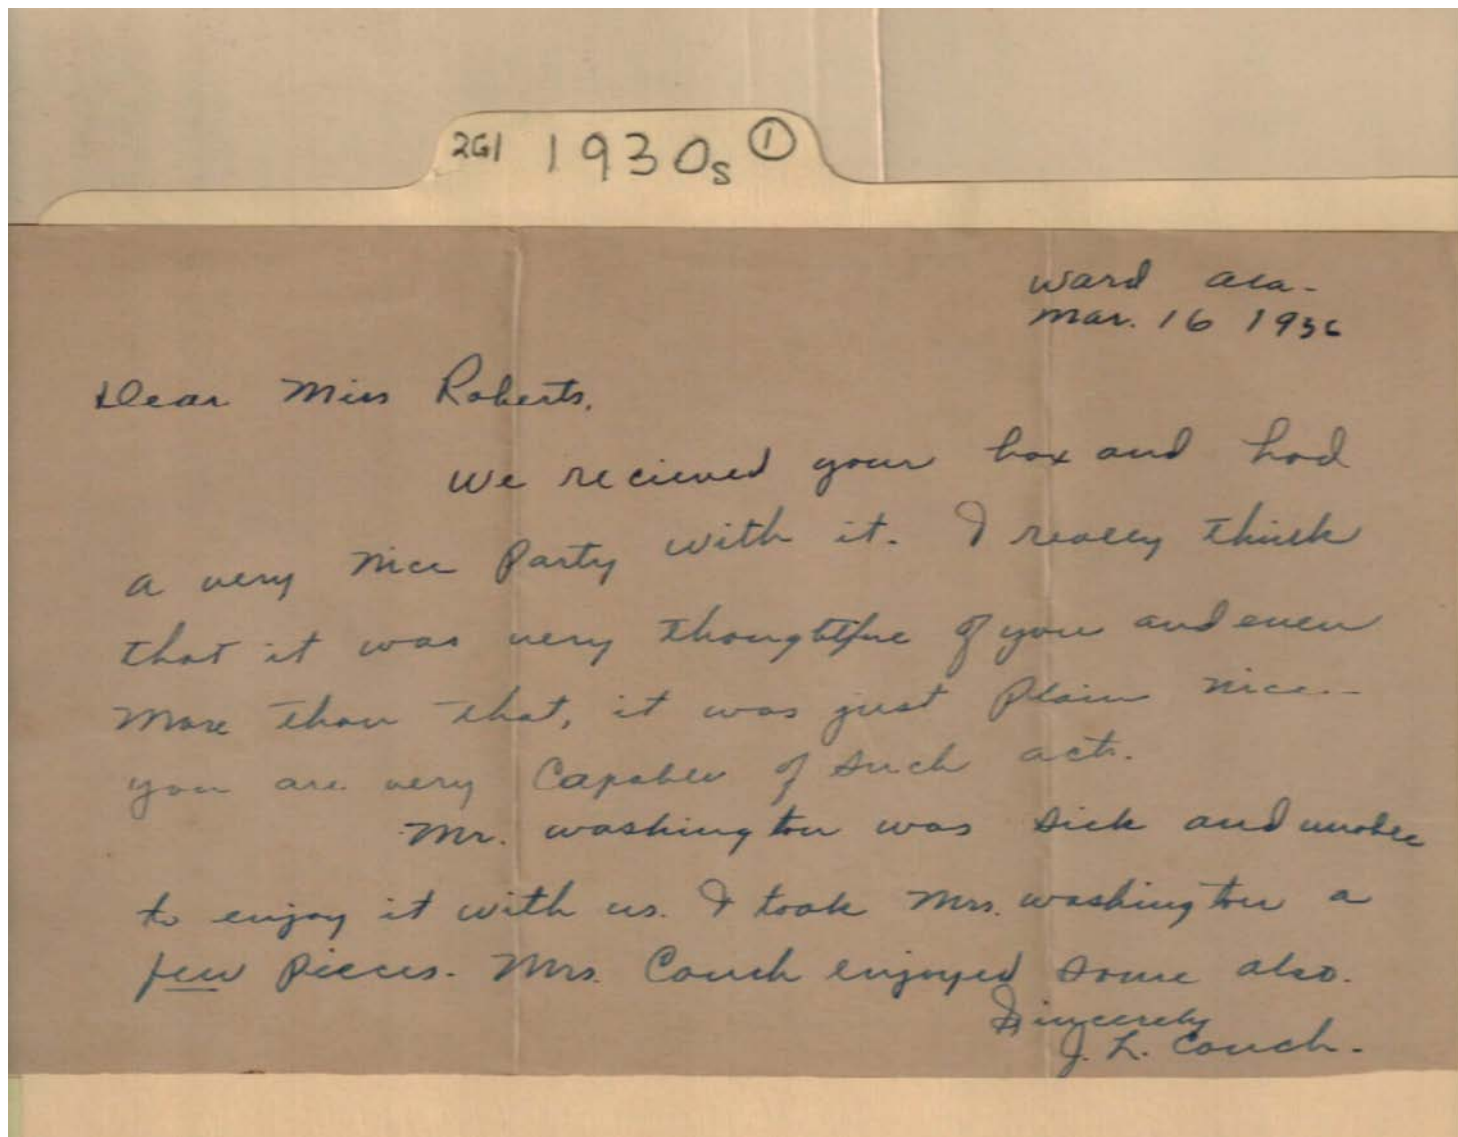 2G1 1930s 1
Ward Ala-
Mar. 16 1936
Dear Miss Roberts,
We recieved your box and had
a very nice Party with it. I really think
that it was very thoughtful of you and even
more than that, it was just Plain nice--
you are very Capable of such acts.
Mr. Washington was sick and unable
to enjoy it with us. I took Mrs. Washington a
few Pieces. Mrs. Couch enjoyed some also.
Sincerely
J. L. Couch.